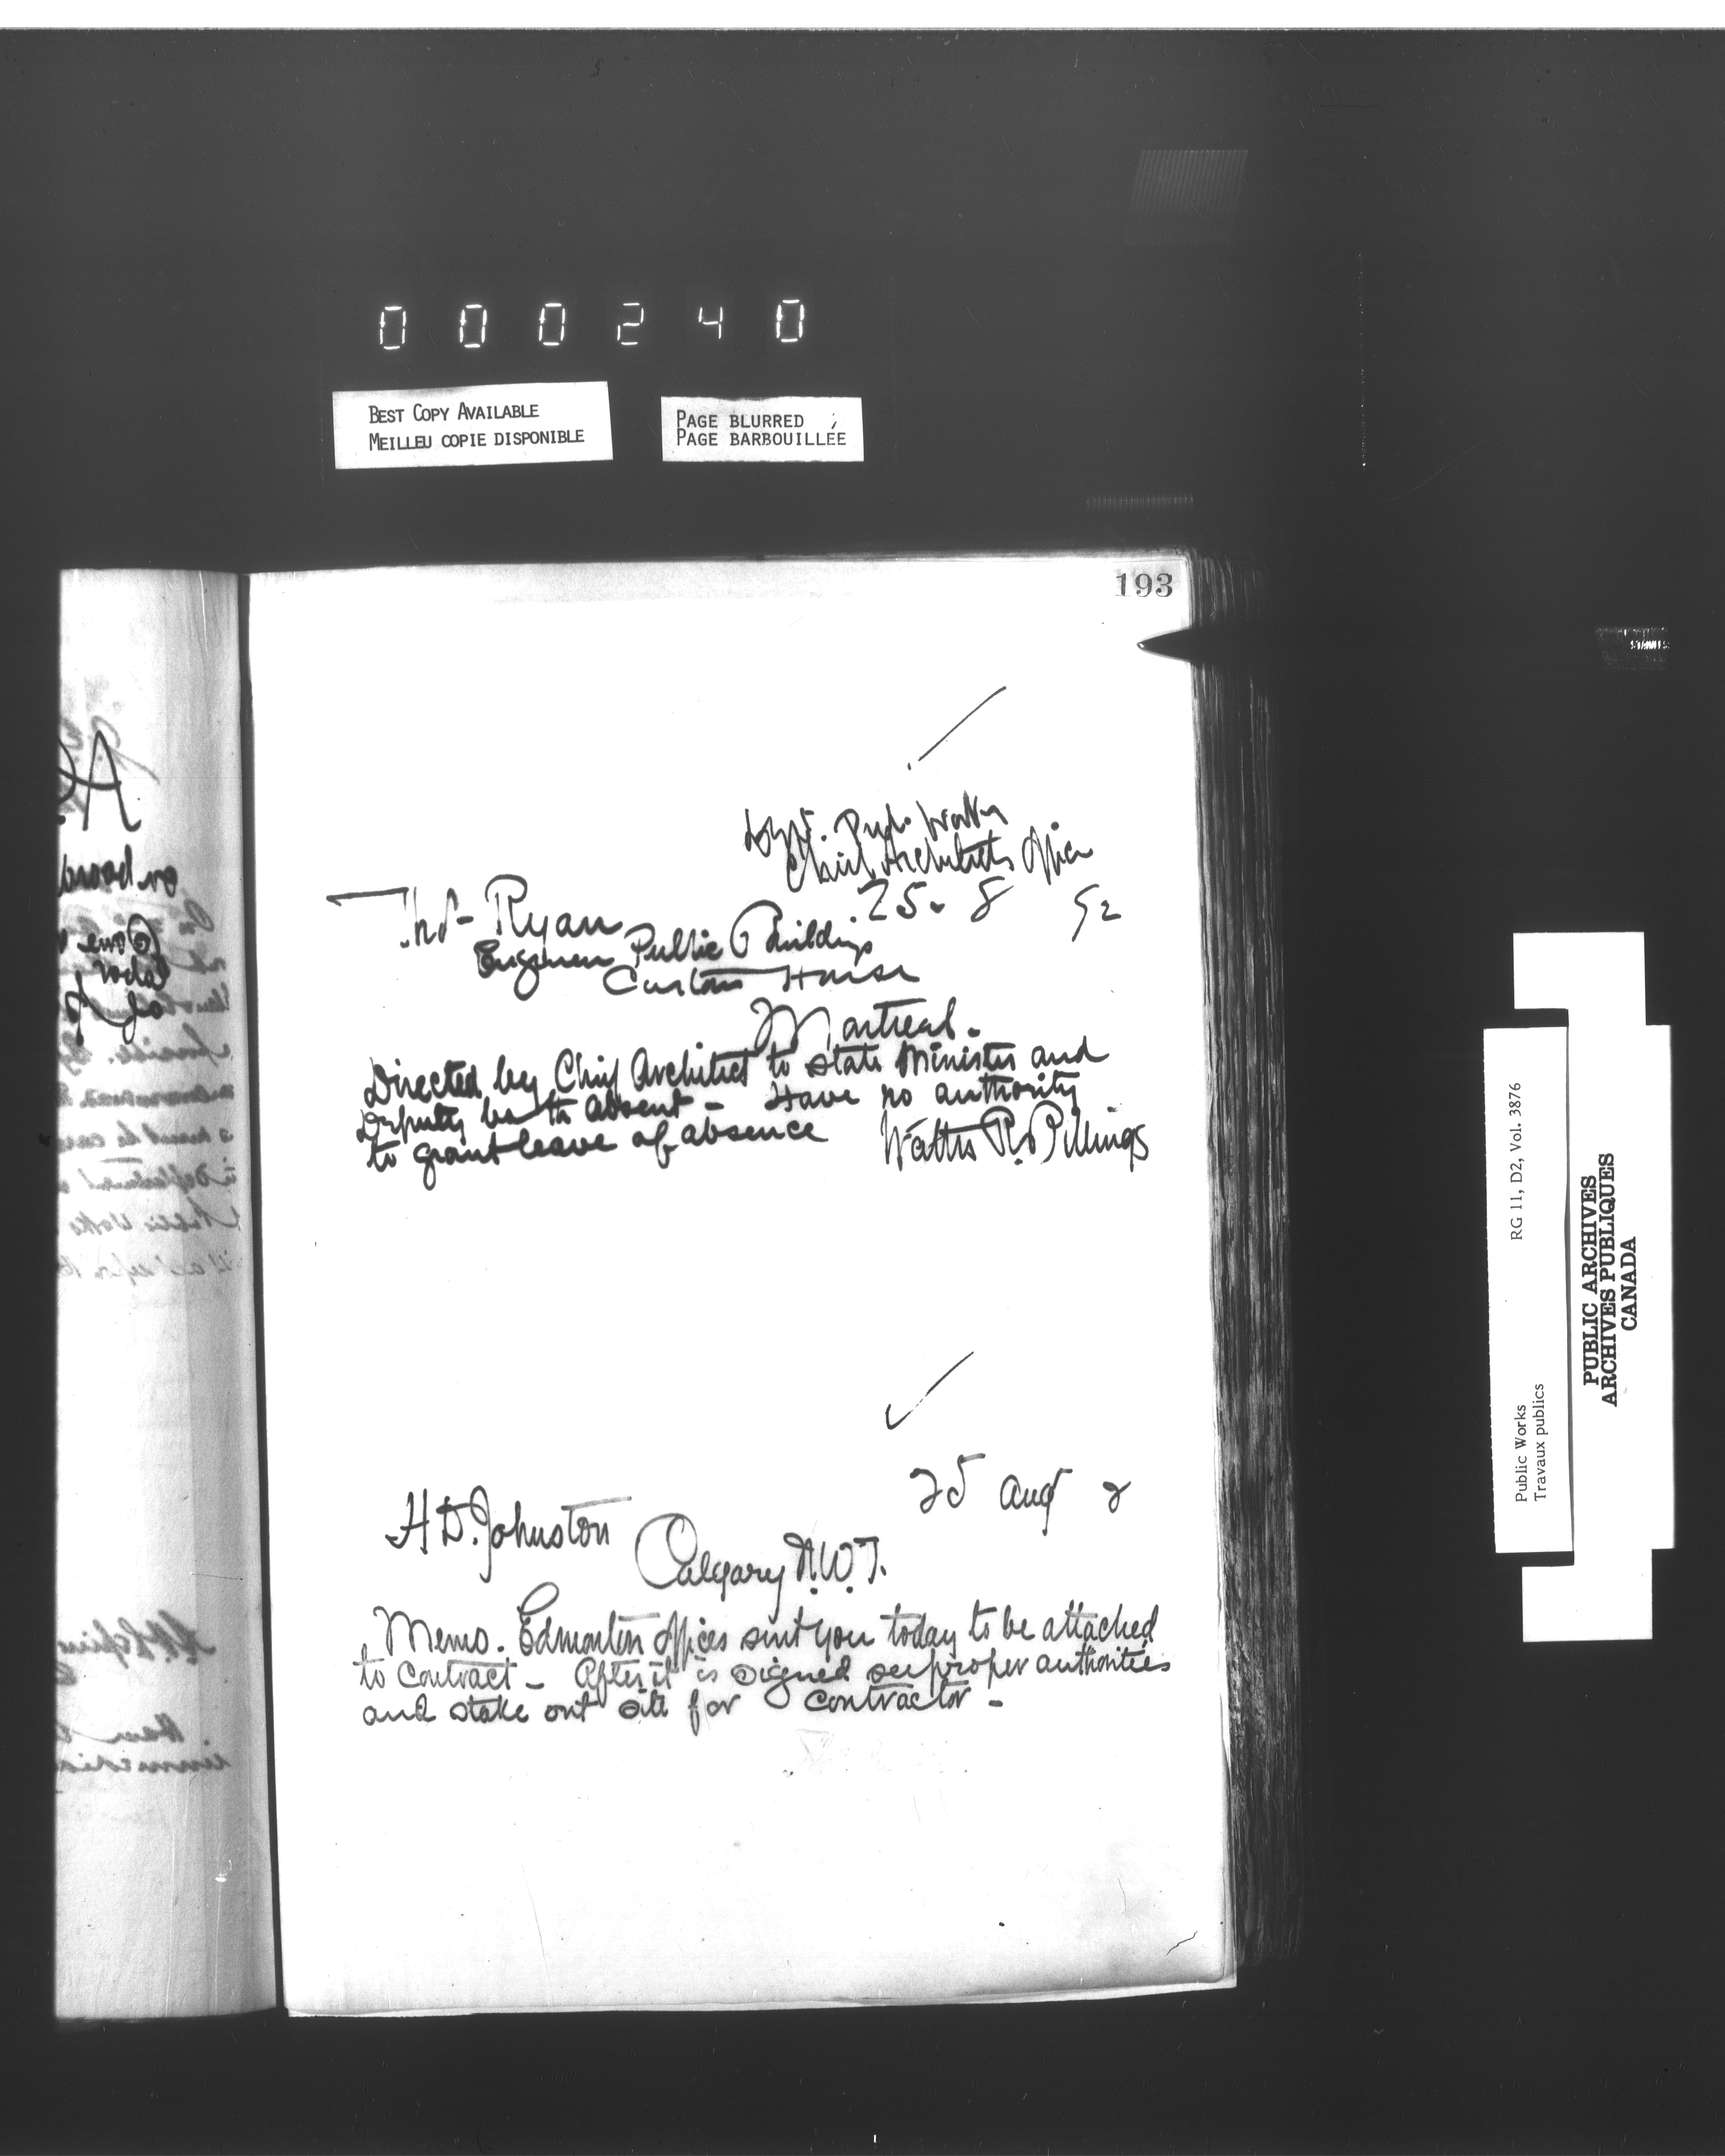 000240
BEST COPY AVAILABLE
MEILLEU COPIE DISPONIBLE
PAGE BLURRED ;
PAGE BARBOUILLÉE
193
Dept. Pub. Works
Chief Architects Office
25. 8 92
Thos Ryan
Engineer Public Buildings
Custom House
Montreal.
Directed by Chief Architect to state Minister and
Deputy both absent - Have no authority
to grant leave of absence Walter R. Billings
25 Aug 2
H D. Johnston
Calgary N.W.T.
Memo. Edmonton Offices sent you today to be attached
to Contract - After it is signed see proper authorities
and stake out site for contractor -
Public Works
Travaux publics
RG 11, D2, Vol. 3876
PUBLIC ARCHIVES
ARCHIVES PUBLIQUES
CANADA